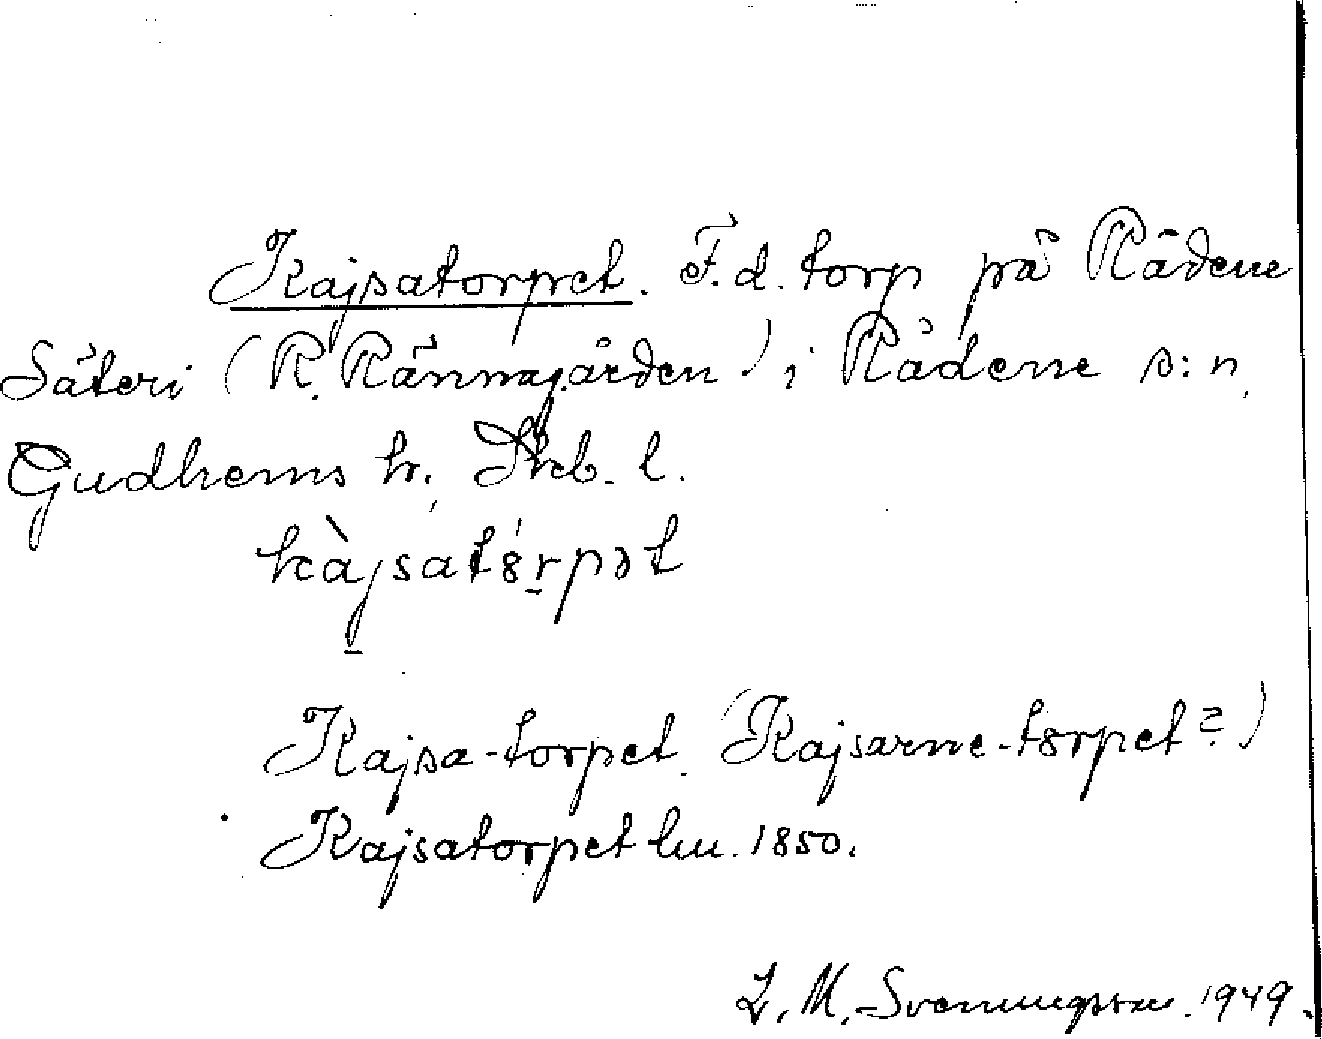 Kajsatorpet. F.d. torp på Rådene
Säteri (R. Rännagården) i Rådene s:n,
Gudhems h., Skb. l.
kàjsatȣ́rpət
Kajsa-torpet. (Kajsarne-torpet?)
Kajsatorpet hu. 1850.
L. M. Svenungsson. 1949.